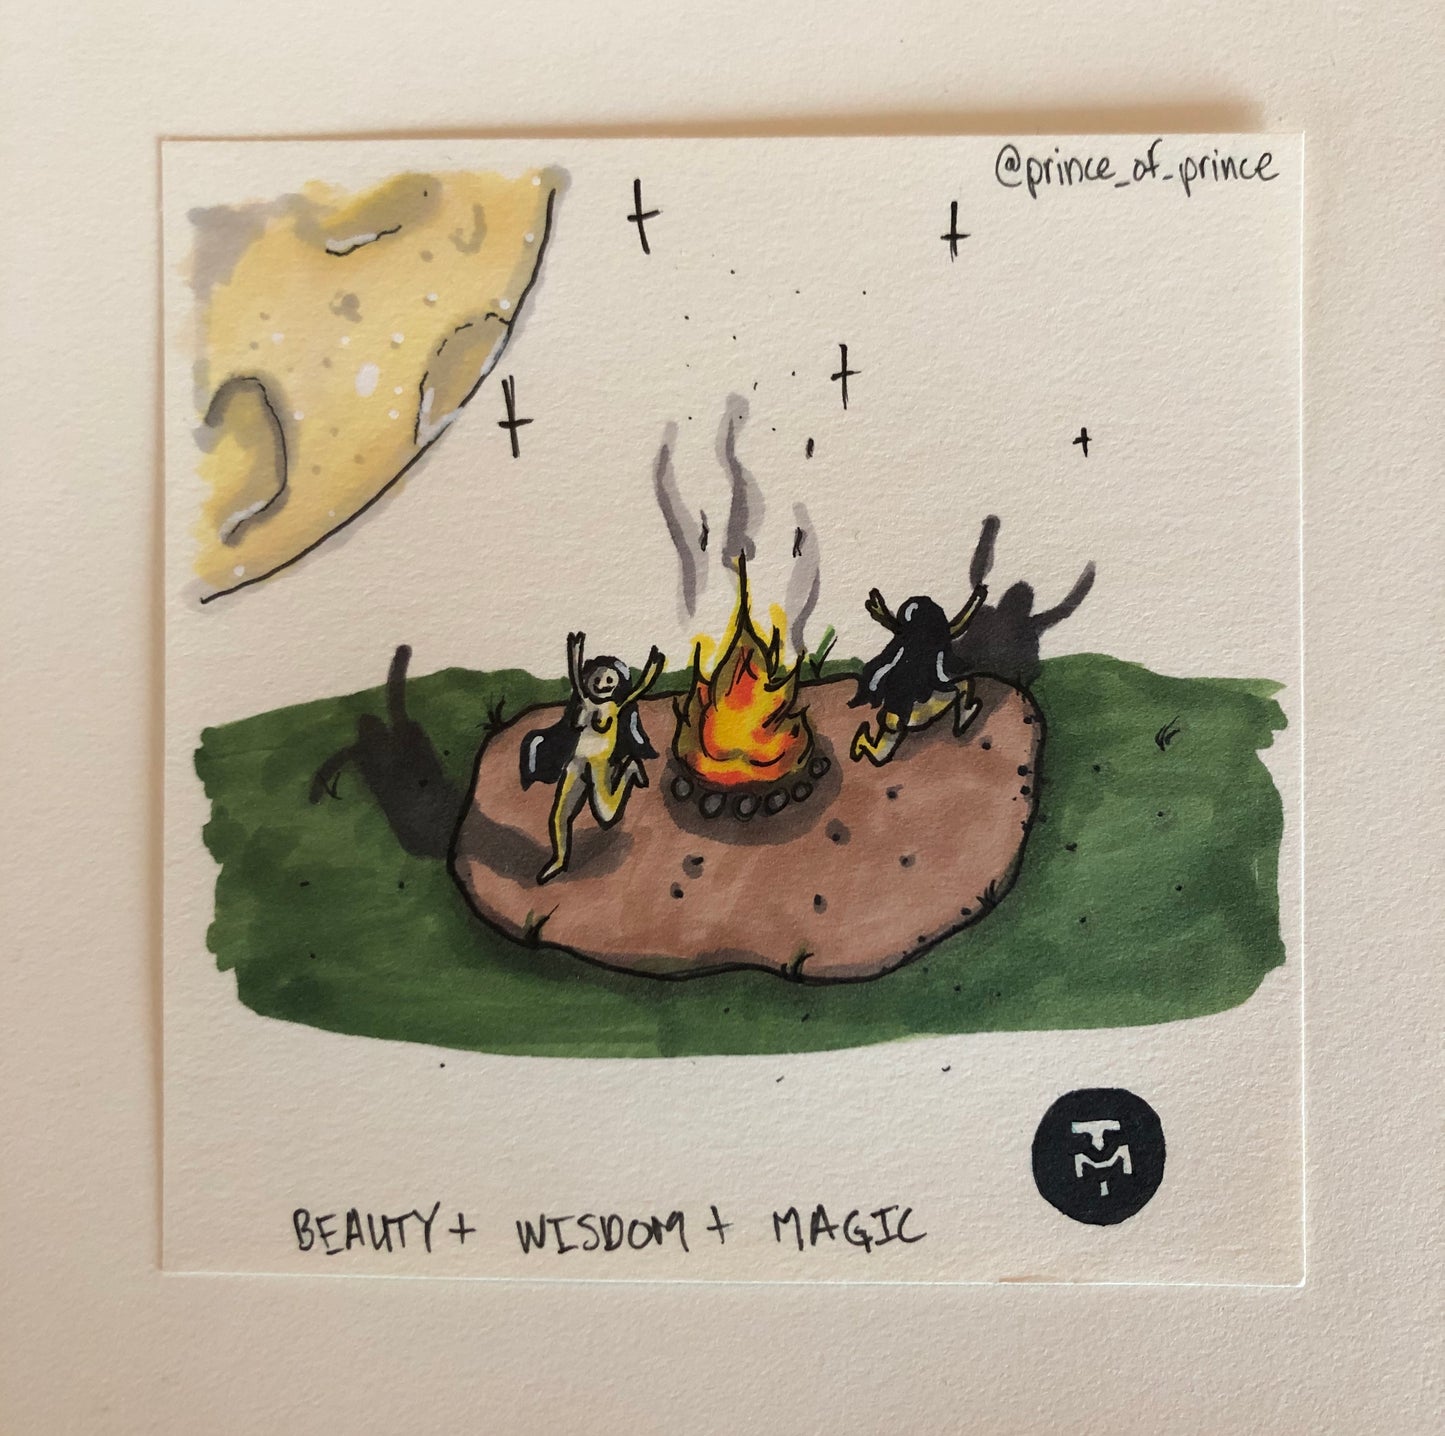 @prince_of_prince
TM
BEAUTY + WISDOM + MAGIC